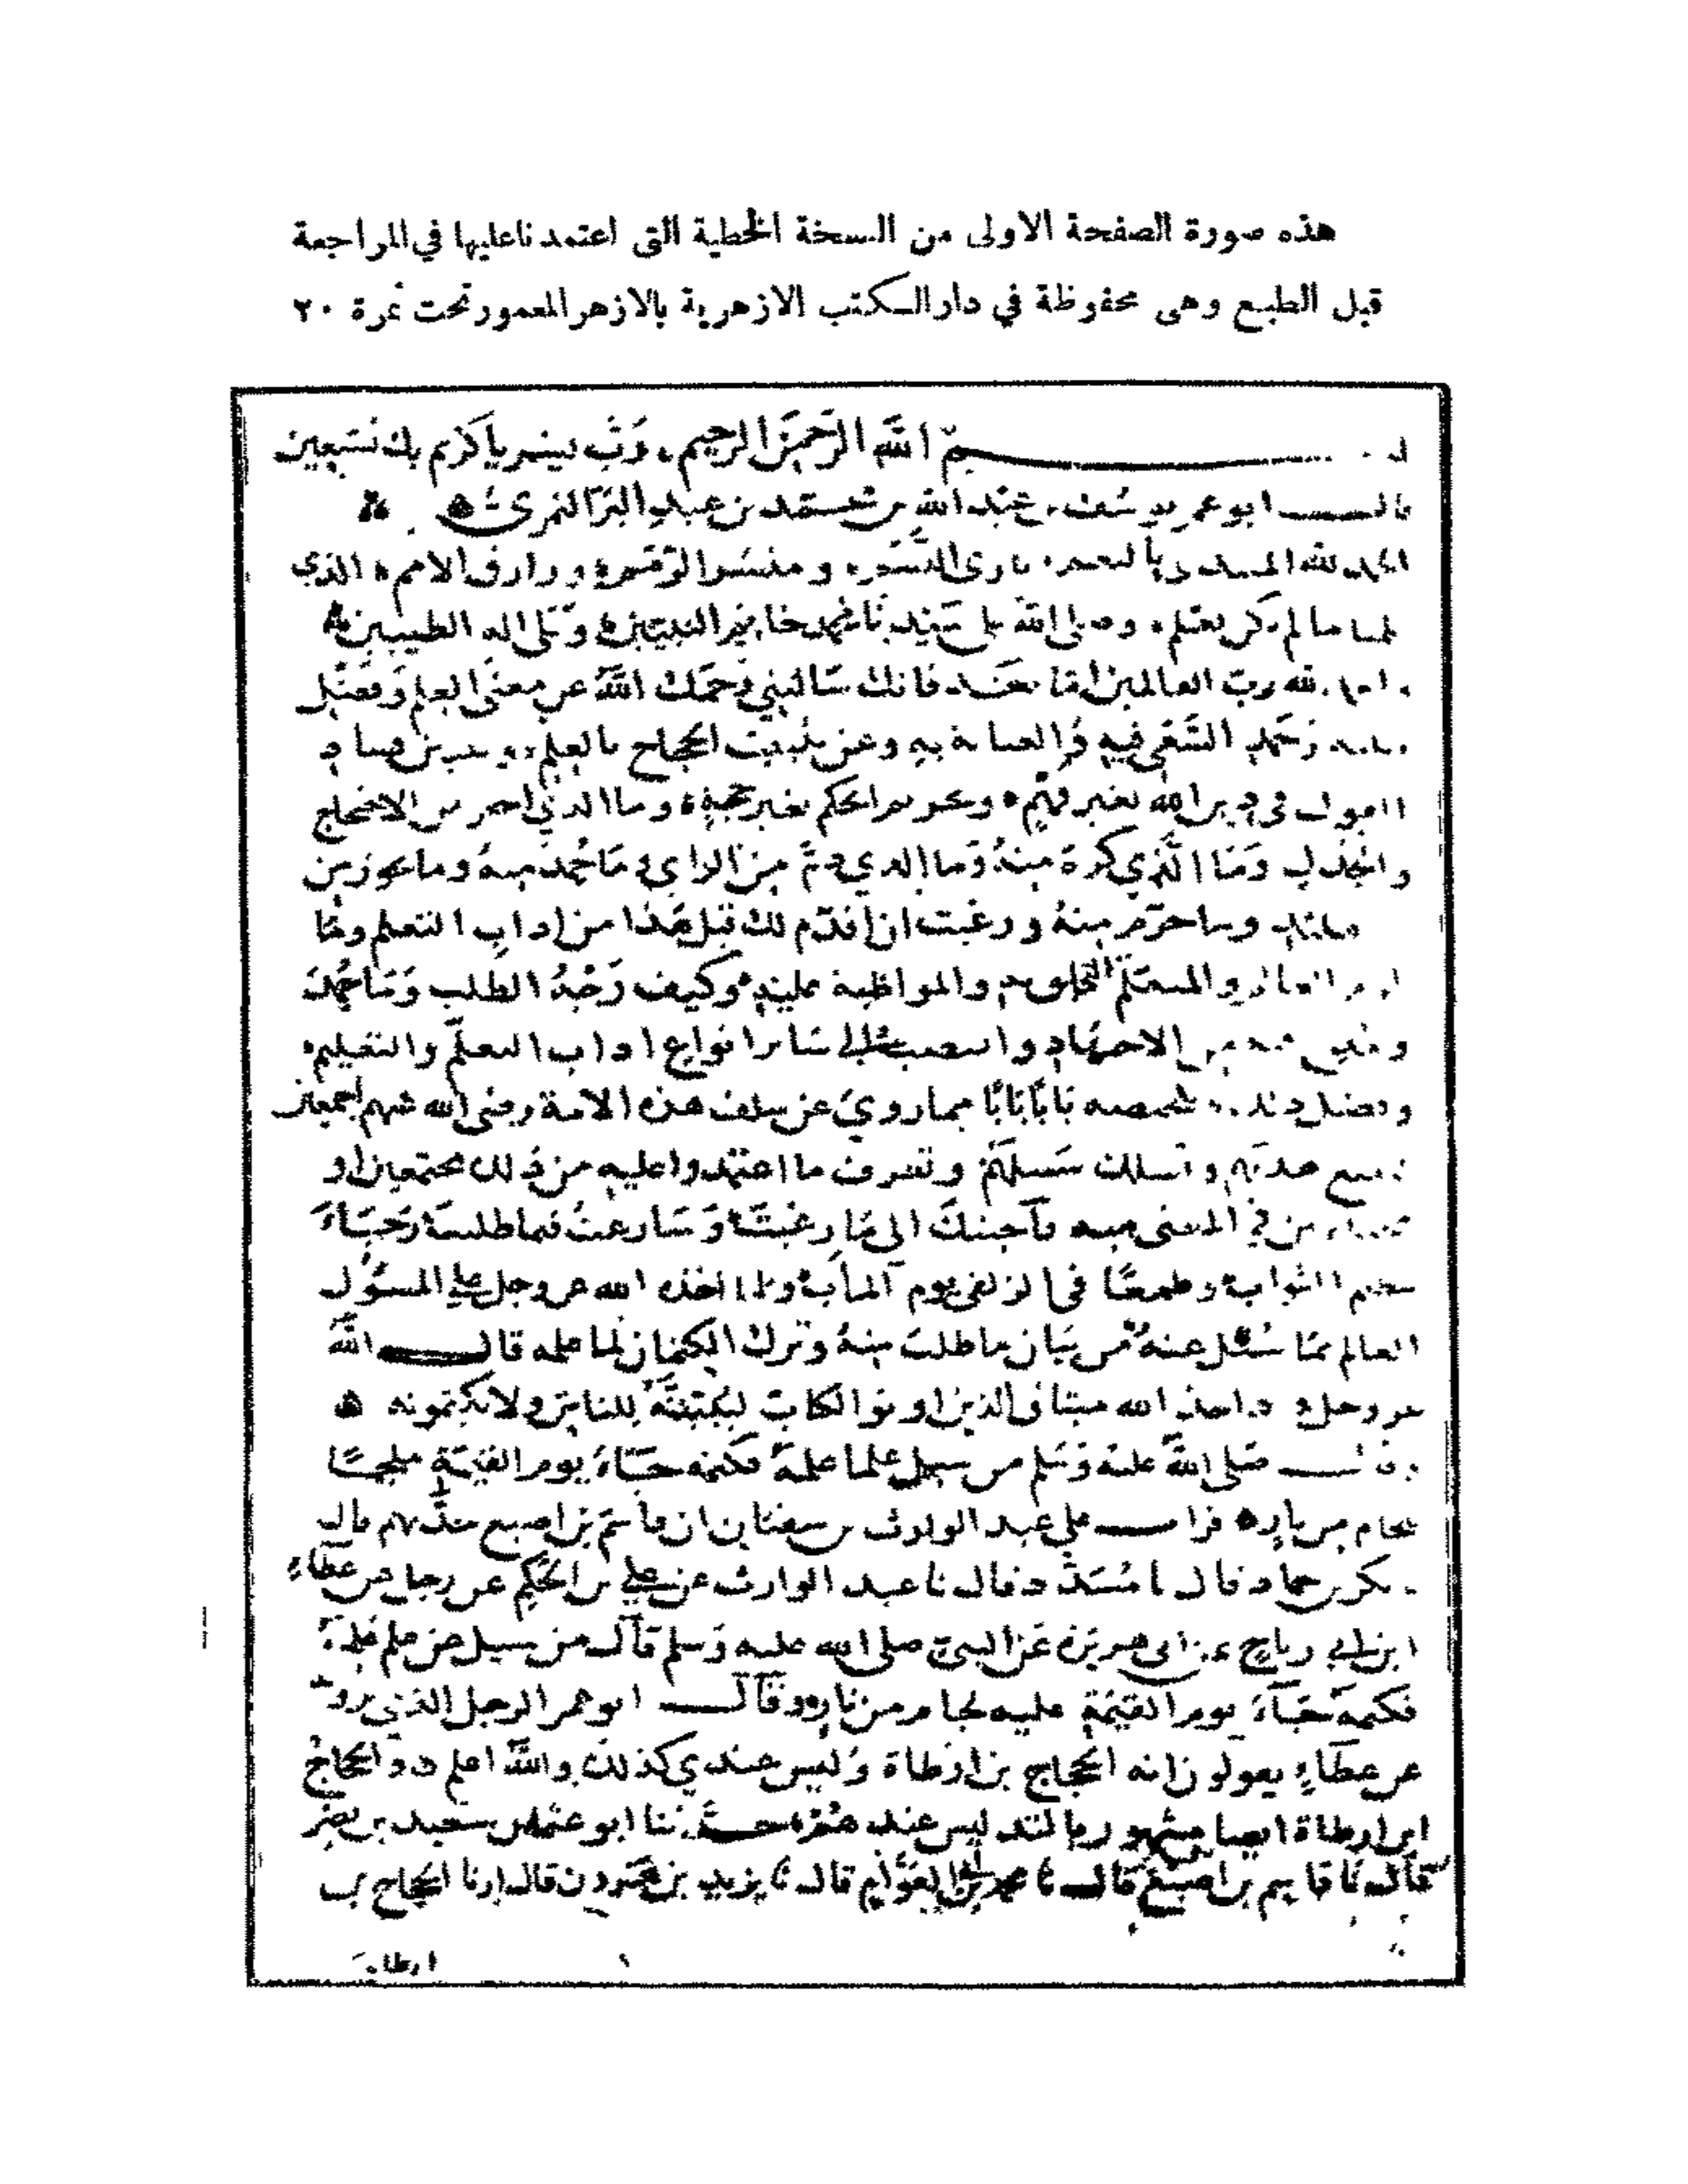 هذه صورة الصفحة الاولى من النسخة الخطية التى اعتمدنا عليها في المراجعة
قبل الطبع وهى محفوظة في دار الكتب الازهرية بالازهر المعمور تحت نمرة ٢٠
بسم الله الرحمن الرحيم رب يسر يا كريم بك نستعين
قال ابو عمر يوسف بن عبد الله بن محمد بن عبد البر النمري
الحمد لله المبتدى بالنعم بارى النسم ومنشر الرمم ورازق الامم الذي
ما لم نكن نعلم وصلى الله على سيدنا محمد خاتم النبيين وعلى اله الطيبين
لله رب العالمين اما بعد فانك سالتني رحمك الله عن معنى العلم وفضل
السعي فيه والعناية به وعن تثبيت الحجاج بالعلم وتبيين فساد
القول في دين الله بغير فهم وتحريم الحكم بغير حجة وما الذي اجيز من الاحتجاج
والجدل وما الذي كره منه وما الذي ذم من الراي وما حمد منه وما يجوز من
وما حرم منه ورغبت ان اقدم لك قبل هذا من اداب التعلم وما
العالم والمتعلم التخلق به والمواظبة عليه وكيف وجه الطلب وما حمد
الاجتهاد والنصب الى سائر انواع اداب التعلم والتعليم
وفضل ذلك بابا بابا مما روي عن سلف هذه الامة رضى الله عنهم اجمعين
هديهم وتسلك سبيلهم وتعرف ما اعتمدوا عليه من ذلك مجتمعين او
في المعنى منه فاجبتك الى ما رغبت وسارعت فيما طلبت رجاء
الثواب وطمعا في الزلفى يوم المآب ولما اخذه الله عز وجل على المسؤل
العالم بما سئل عنه من بيان ما طلب منه وترك الكتمان لما علمه قال الله
عز وجل واذ اخذ الله ميثاق الذين اوتوا الكتاب ليبيننه للناس ولا يكتمونه
وقال صلى الله عليه وسلم من سئل علما علمه فكتمه جاء يوم القيمة ملجما
بلجام من نار قرات على عبد الوارث بن سفيان ان قاسم بن اصبغ حدثهم قال
بكر بن حماد قال نا مسدد قال نا عبد الوارث عن علي بن الحكم عن رجل عن عطاء
ابن ابي رباح عن ابى هريرة عن النبي صلى الله عليه وسلم قال من سئل عن علم علمه
فكتمه جاء يوم القيمة عليه لجام من نار وقال ابو عمر الرجل الذي يرويه
عن عطاء يقولون انه الحجاج بن ارطاة وليس عندي كذلك والله اعلم والحجاج
ابن ارطاة ايضا مشهور بالتدليس عندهم حدثنا ابو عثمان سعيد بن نصر
قال نا قاسم بن اصبغ قال نا محمد بن العوام قال نا يزيد بن هرون قال ارنا الحجاج بن
ارطاة